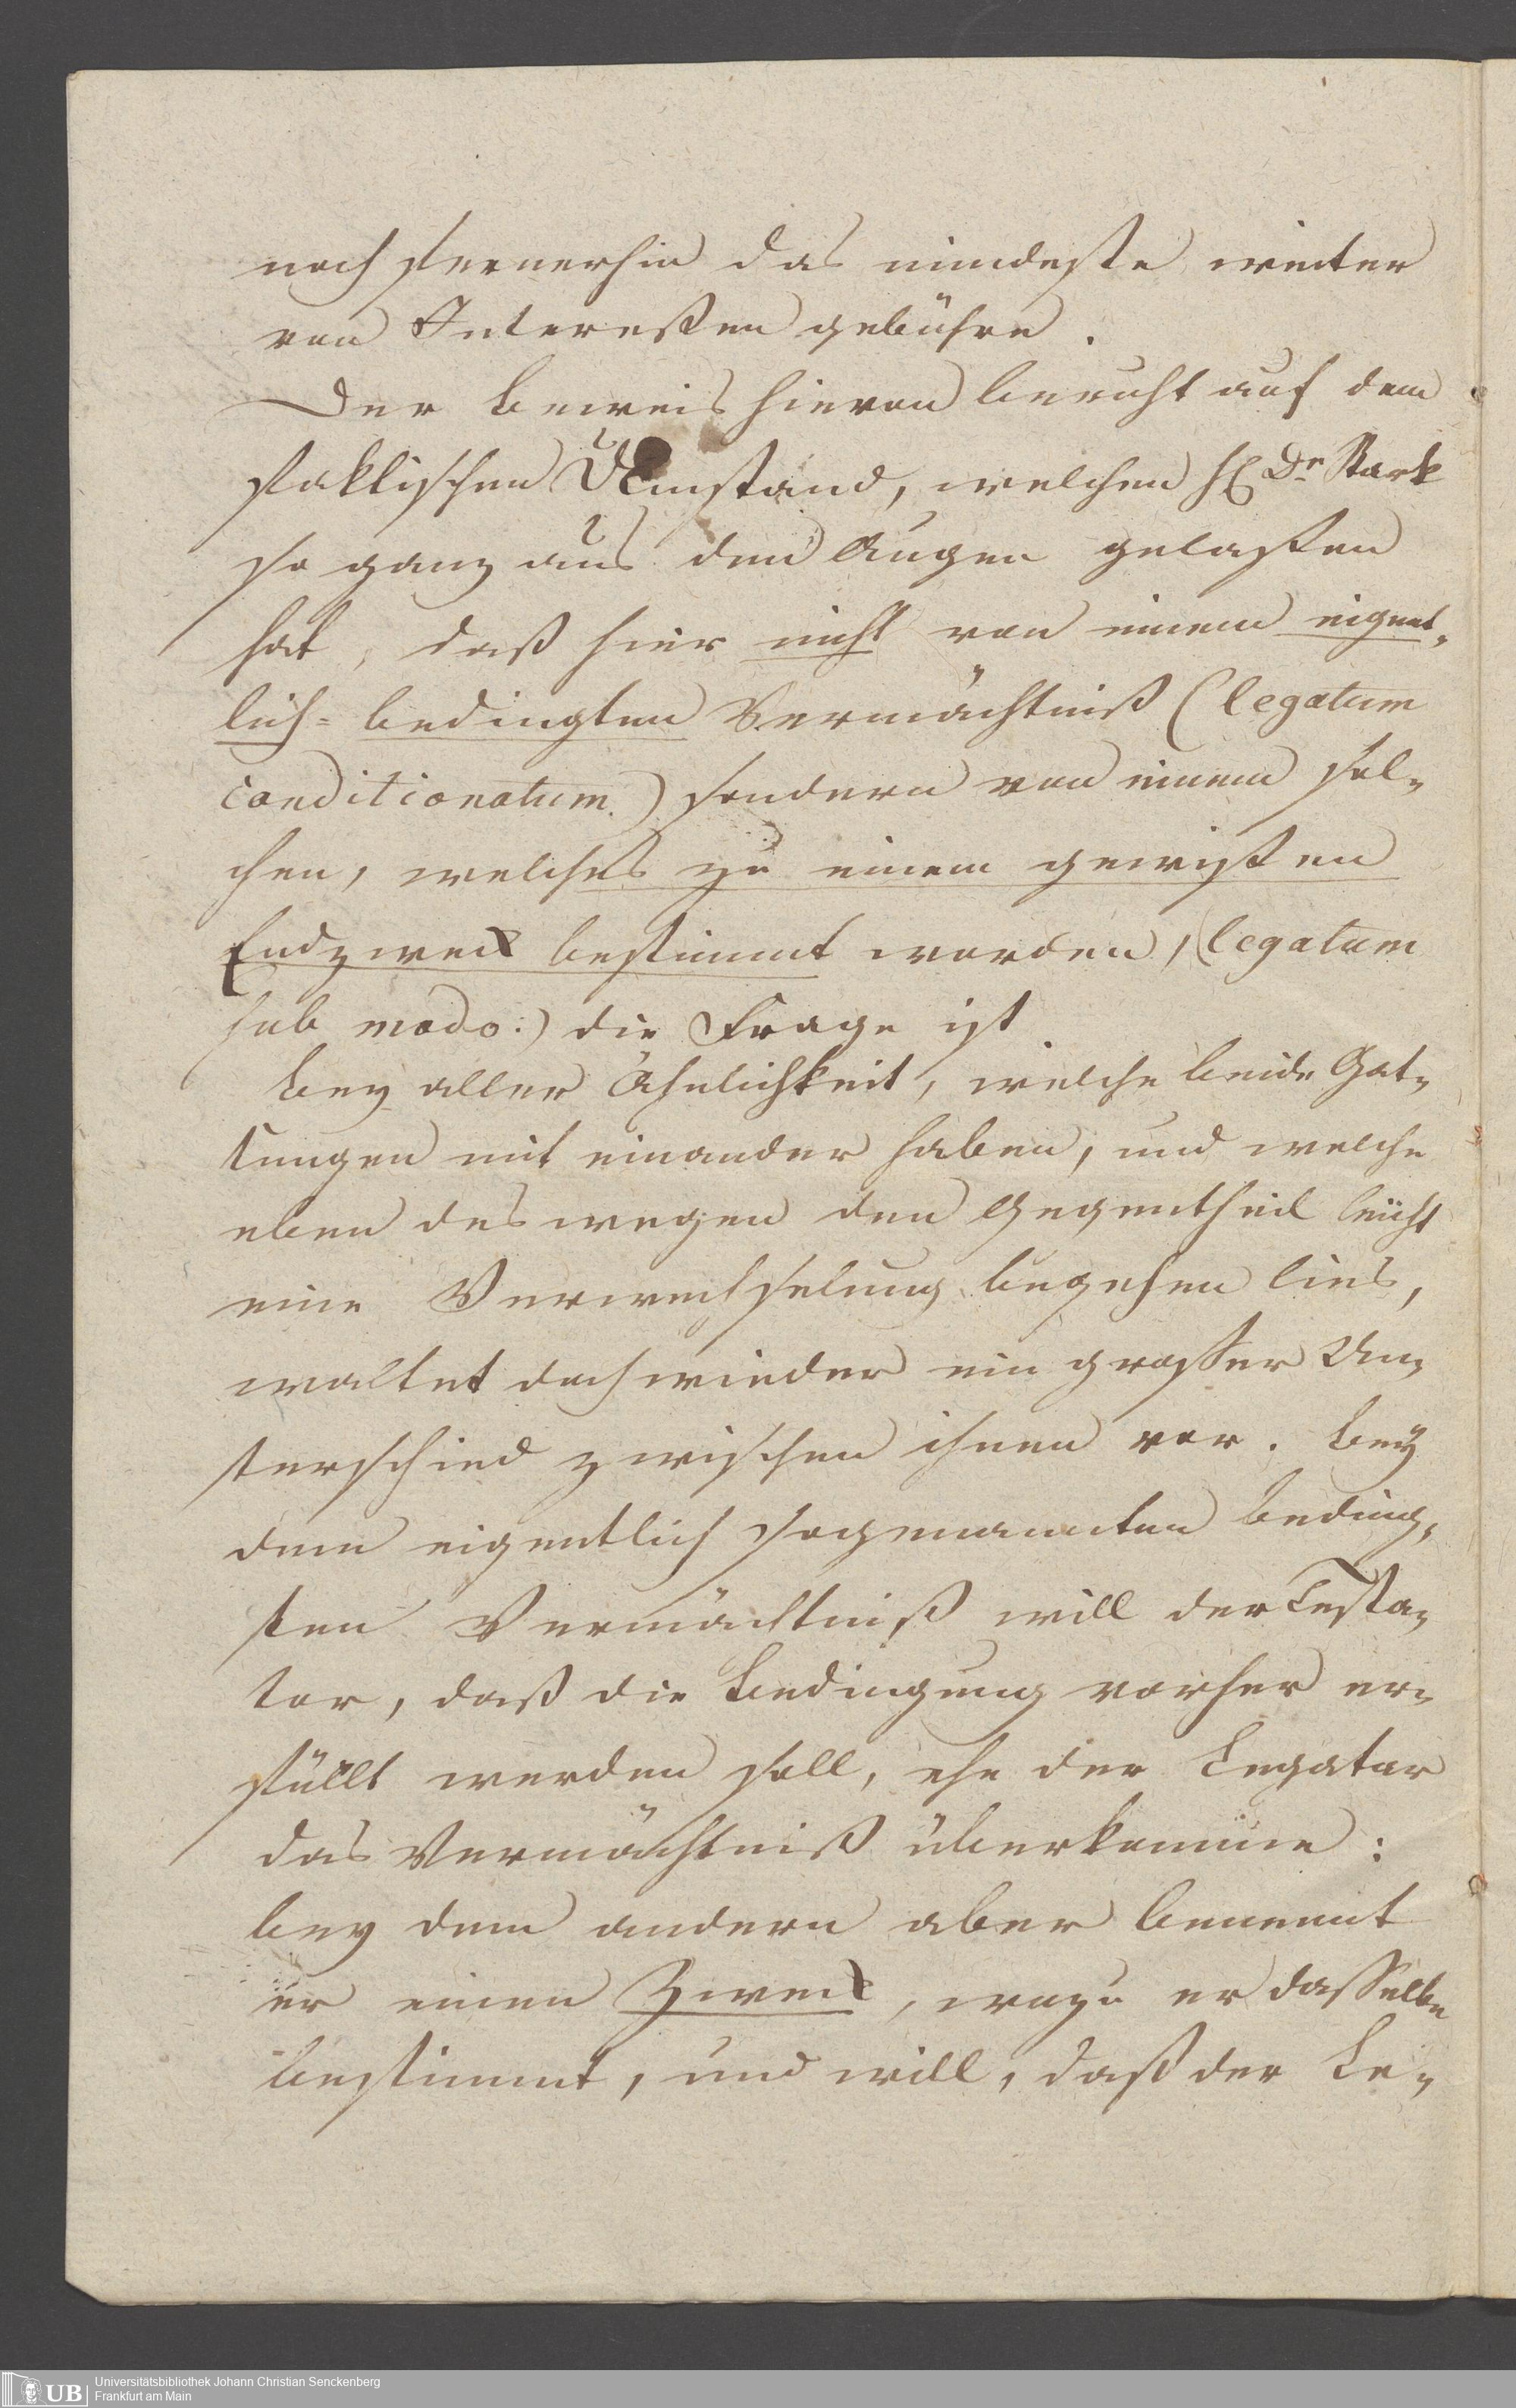 noch fernerhin das mindeste weiter
von Interessen gebühre.
Der Beweis hievon beruht auf dem
faktischen Umstand, welchen H. Dr. Stark
so ganz aus den Augen gelassen
hat, daß hier nicht von einem eigent-
lich-bedingten Vermächtniß (legatum
conditionatum) sondern von einem sol-
chen, welches zu einem gewissen
Endzweck bestimmt worden, (legatum
sub modo:) die Frage ist.
Bey aller Ähnlichkeit, welche beide Gat-
tungen mit einander haben, und welche
eben deswegen den Gegentheil leicht
eine Verwechselung begehen lies,
waltet doch wieder ein grosser Un-
terschied zwischen ihnen vor. Bey
dem eigentlich sogenannten beding-
ten Vermächtniß will der Testa-
tor, daß die Bedingung vorher er-
füllt werden soll, ehe der Legatar
das Vermächtniß überkomme:
bey dem andern aber benennt
er einen Zweck, wozu er dasselbe
bestimmt, und will, daß der Le-
UB
Universitätsbibliothek Johann Christian Senckenberg
Frankfurt am Main